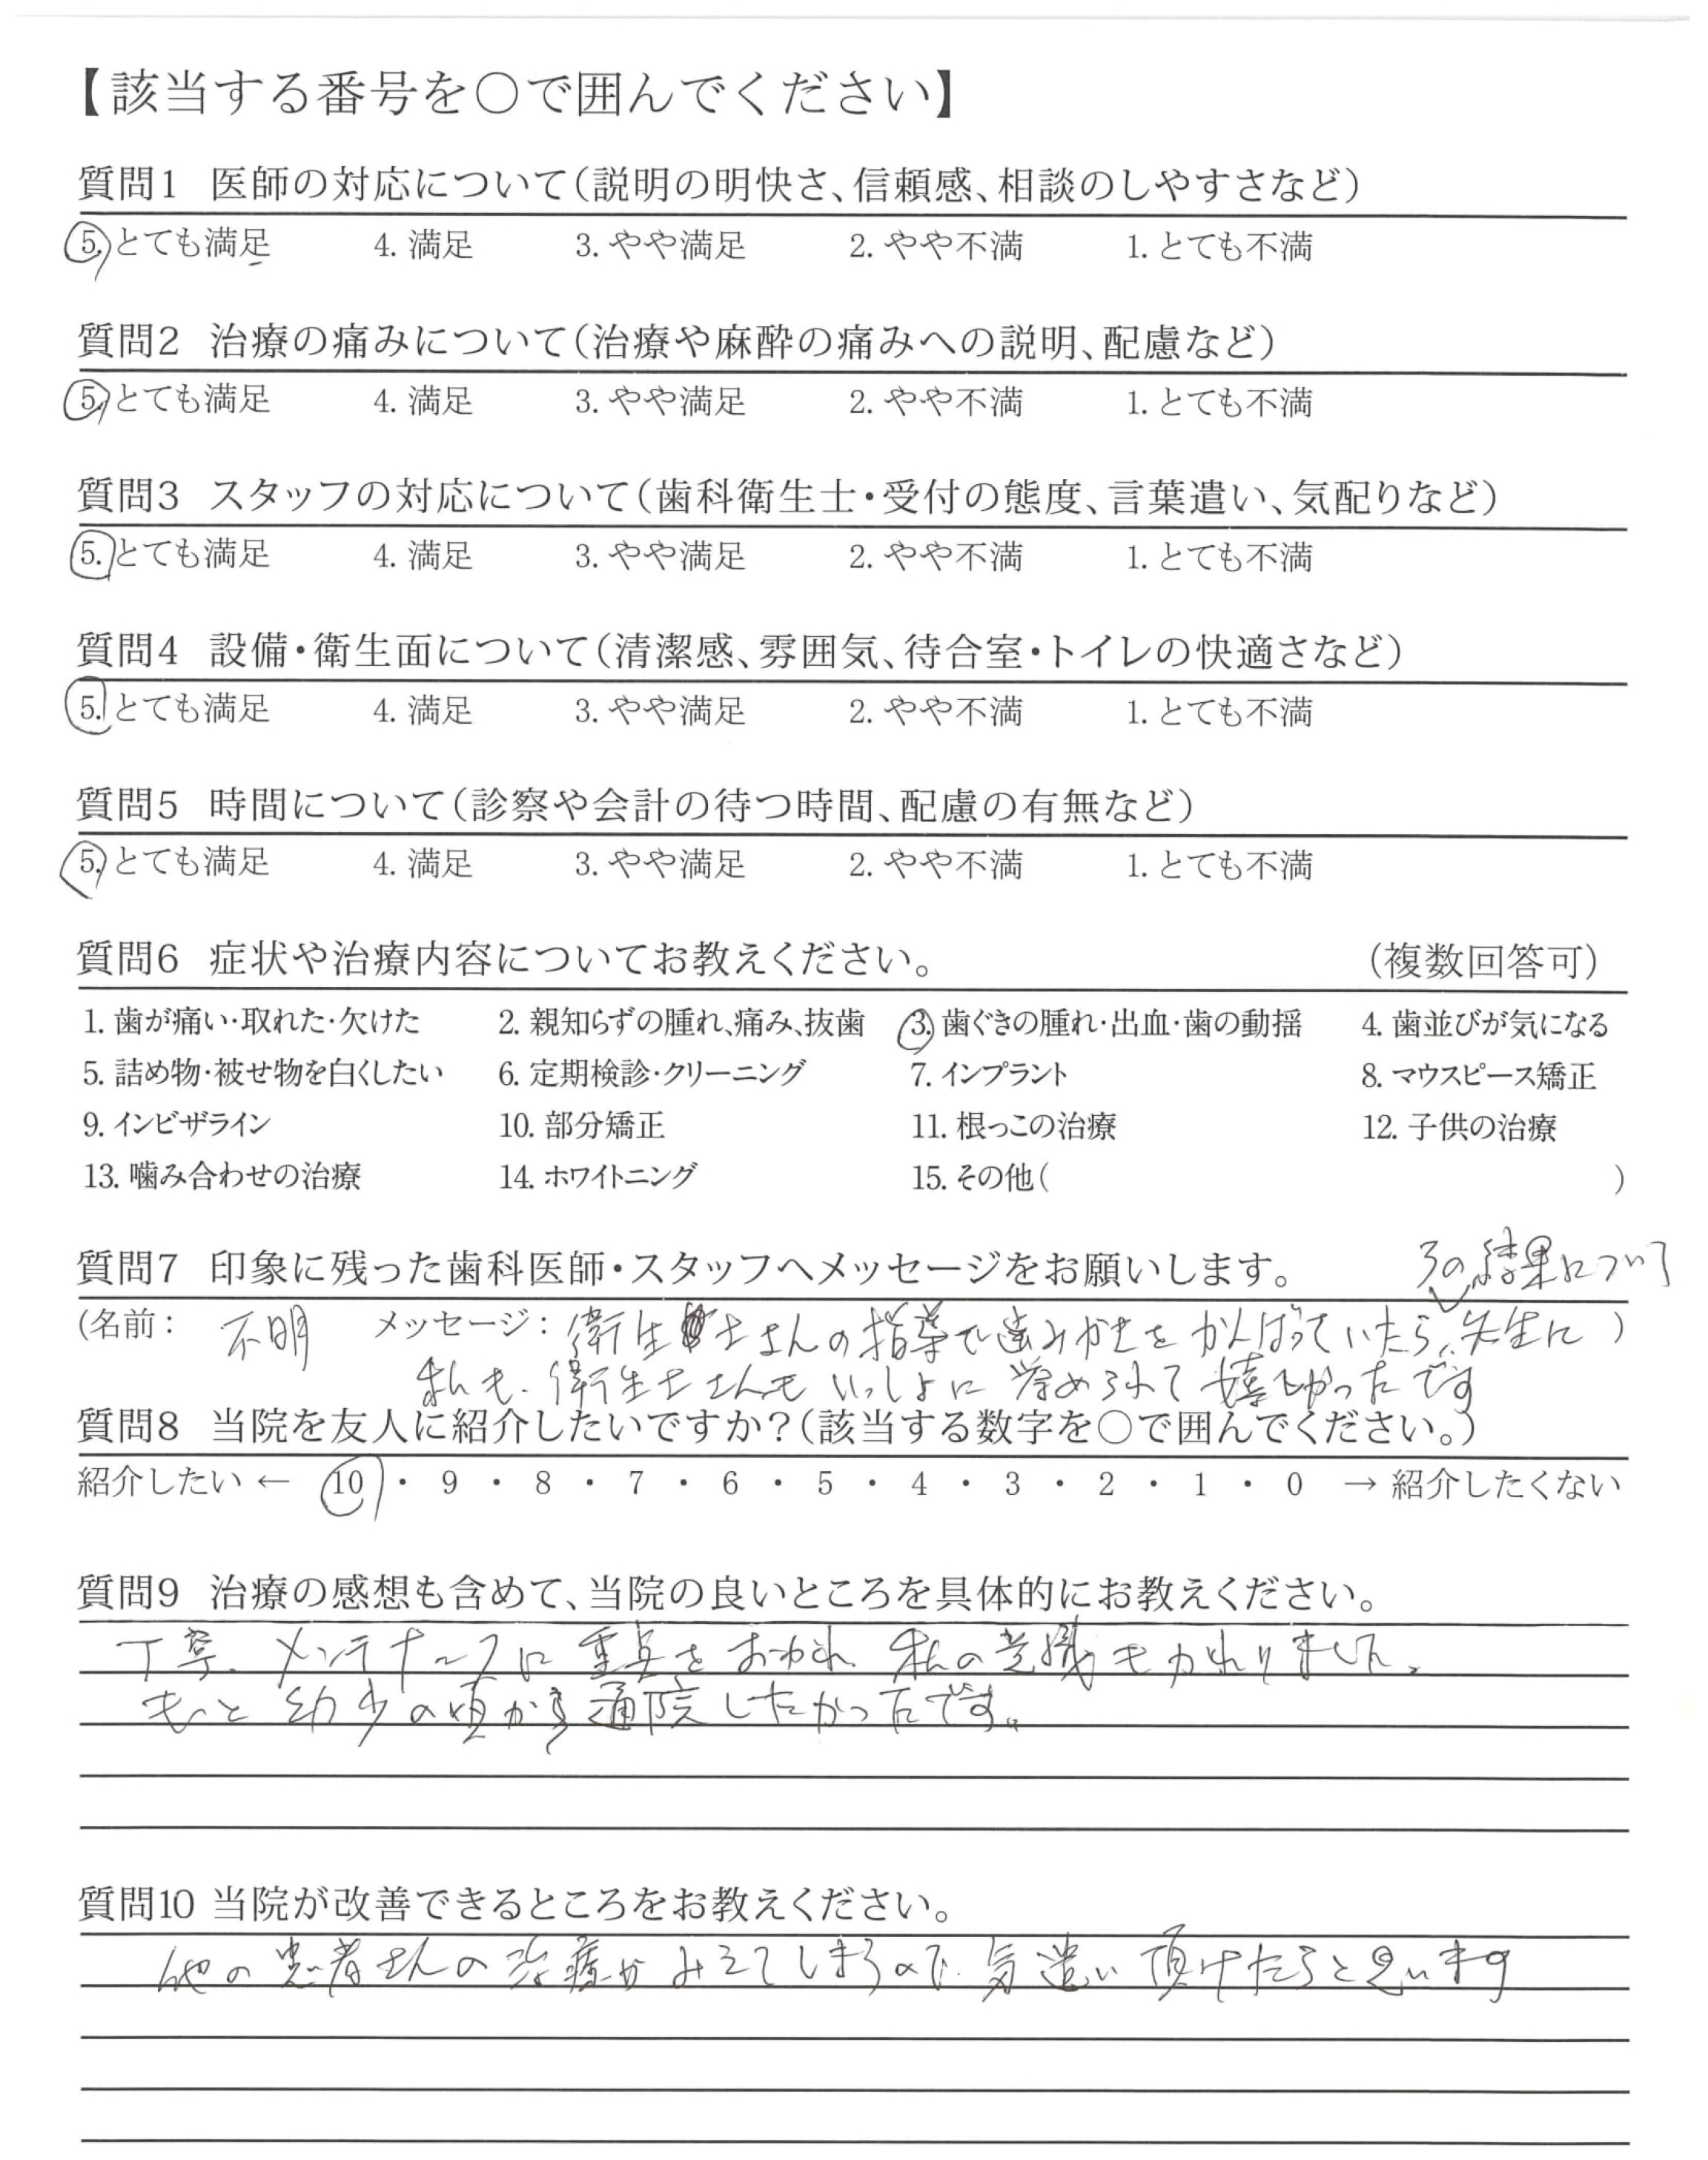 【該当する番号を〇で囲んでください】
質問1 医師の対応について(説明の明快さ、信頼感、相談のしやすさなど)
5. とても満足 4. 満足 3. やや満足 2. やや不満 1. とても不満
質問2 治療の痛みについて(治療や麻酔の痛みへの説明、配慮など)
5. とても満足 4. 満足 3. やや満足 2. やや不満 1. とても不満
質問3 スタッフの対応について(歯科衛生士・受付の態度、言葉遣い、気配りなど)
5. とても満足 4. 満足 3. やや満足 2. やや不満 1. とても不満
質問4 設備・衛生面について(清潔感、雰囲気、待合室・トイレの快適さなど)
5. とても満足 4. 満足 3. やや満足 2. やや不満 1. とても不満
質問5 時間について(診察や会計の待つ時間、配慮の有無など)
5. とても満足 4. 満足 3. やや満足 2. やや不満 1. とても不満
質問6 症状や治療内容についてお教えください。 (複数回答可)
1. 歯が痛い・取れた・欠けた 2. 親知らずの腫れ、痛み、抜歯 3. 歯ぐきの腫れ・出血・歯の動揺 4. 歯並びが気になる
5. 詰め物・被せ物を白くしたい 6. 定期検診・クリーニング 7. インプラント 8. マウスピース矯正
9. インビザライン 10. 部分矯正 11. 根っこの治療 12. 子供の治療
13. 噛み合わせの治療 14. ホワイトニング 15. その他( )
質問7 印象に残った歯科医師・スタッフへメッセージをお願いします。
その結果について
(名前: 不明 メッセージ: 衛生士さんの指導で歯みがきをがんばっていたら、先生に )
私も、衛生士さんもいっしょに誉められて嬉しかったです
質問8 当院を友人に紹介したいですか?(該当する数字を〇で囲んでください。)
紹介したい ← 10 ・ 9 ・ 8 ・ 7 ・ 6 ・ 5 ・ 4 ・ 3 ・ 2 ・ 1 ・ 0 → 紹介したくない
質問9 治療の感想も含めて、当院の良いところを具体的にお教えください。
丁寧、メンテナースに重点をおかれ 私の意識もかわりました。
もっと幼少の頃から通院したかったです。
質問10 当院が改善できるところをお教えください。
他の患者さんの治療がみえてしまうので、気遣い頂けたらと思います